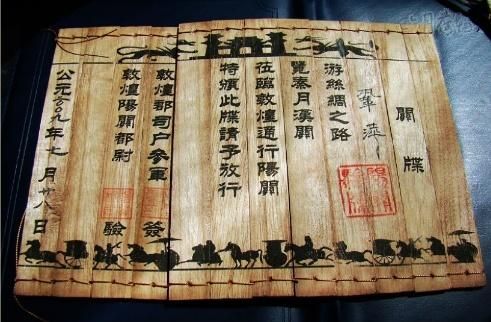 關牒
鞏萍
游絲綢之路
覽秦月漢關
莅臨敦煌通行陽關
特頒此牒請予放行
敦煌郡司户參軍 簽
敦煌陽關都尉 驗
公元二〇〇九年七月廿八日